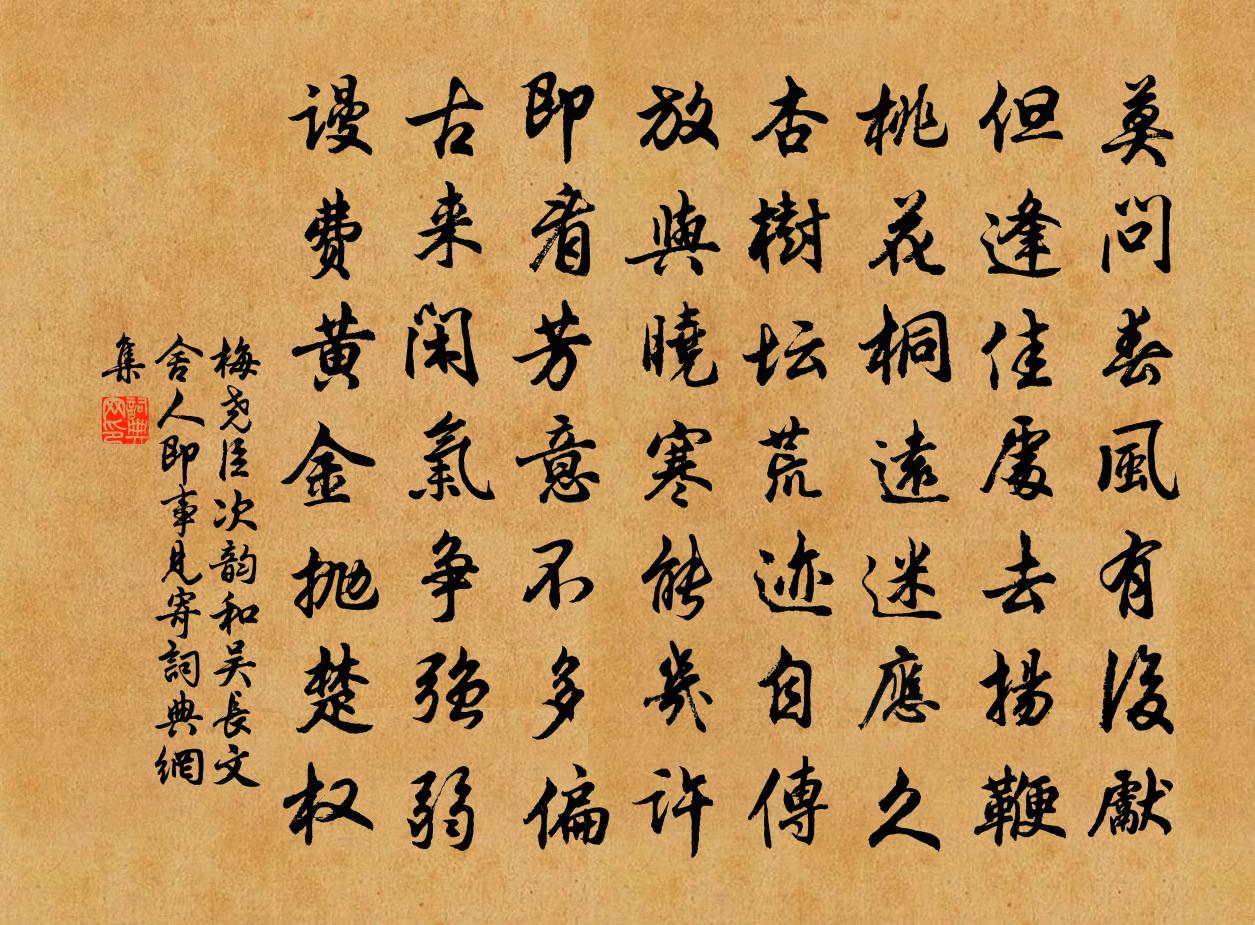 莫問春風有後獻
但逢佳處去揚鞭
桃花桐遠迷應久
杏樹坛荒迹自傳
放與曉寒能幾許
即看芳意不多偏
古来閑氣争强弱
谩費黄金抛楚权
梅尧臣次韵和吴長文
舍人即事見寄詞典網
集
詞典网印